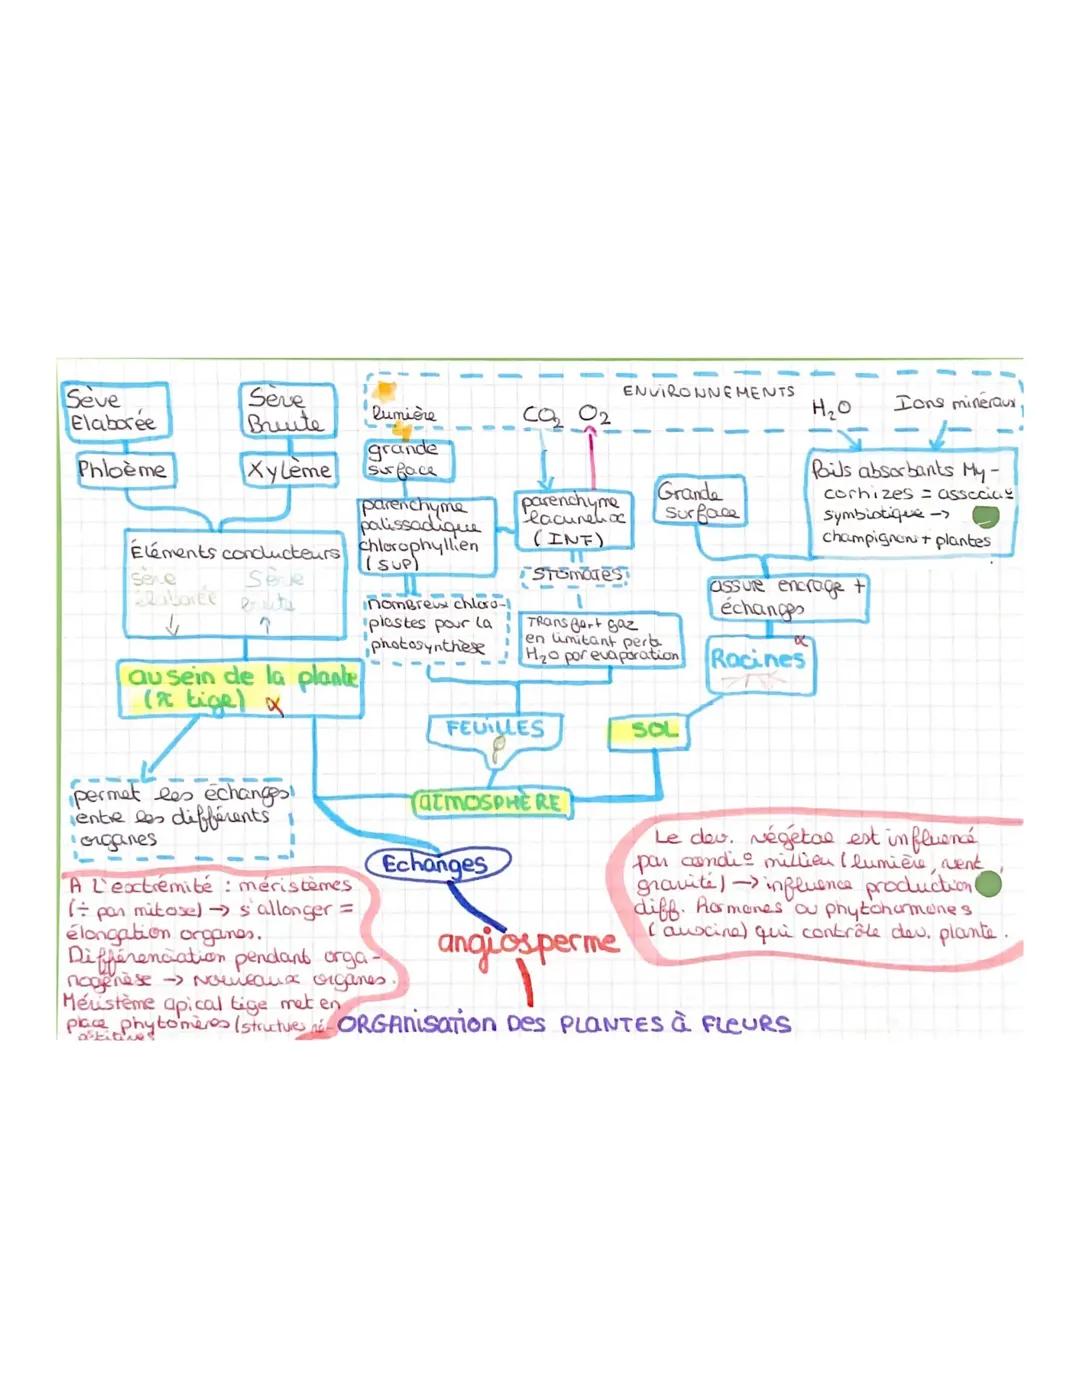 Sève
Elaborée
Sève
Brute
Phloème
Xylème
Éléments conducteurs
sève
élaborée
Sève
brute
au sein de la plante
(π tige) α
permet les échanges
entre les différents
organes
ENVIRONNEMENTS
lumière
CO₂ O₂
H₂O
Ions minéraux
grande
surface
parenchyme
palissadique
chlorophyllien
(SUP)
nombreux chloro-
plastes pour la
photosynthèse
parenchyme
lacuneux
(INF)
STOMATES
Transfert gaz
en limitant perte
H₂O par évaporation
FEUILLES
Grande
surface
Poils absorbants My-
corhizes = associa°
symbiotique →
champignon + plantes
assure encrage +
échanges
Racines α
SOL
ATMOSPHÈRE
Echanges
angiosperme
ORGANisation Des PLANTES à FLEURS
A L'extrémité : méristèmes
(÷ par mitose) → s'allonger =
élongation organes.
Différenciation pendant orga-
nogénèse → nouveaux organes.
Méristème apical tige met en
place phytomères (structures ré-
pétitives
Le dev. végétal est influencé
par condi° millieu (lumière, vent,
gravité) → influence production
diff. Hormones ou phytohormones
(auxine) qui contrôle dev. plante.